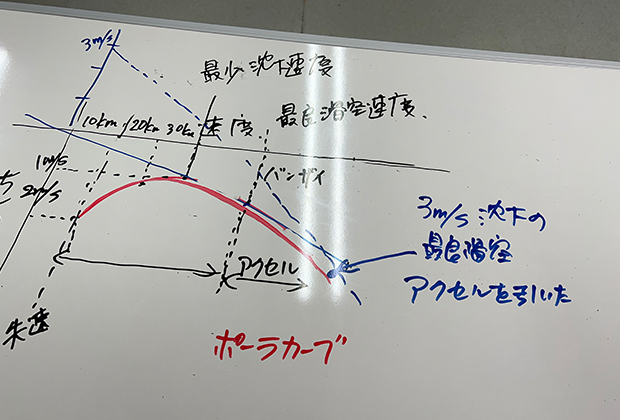 3m/s
最少沈下速度
最良滑空速度.
10km 20km 30km 速度
1m/s
2m/s
バンザイ
3m/s 沈下の
最良滑空
アクセルを引いた
アクセル
失速
ポーラカーブ